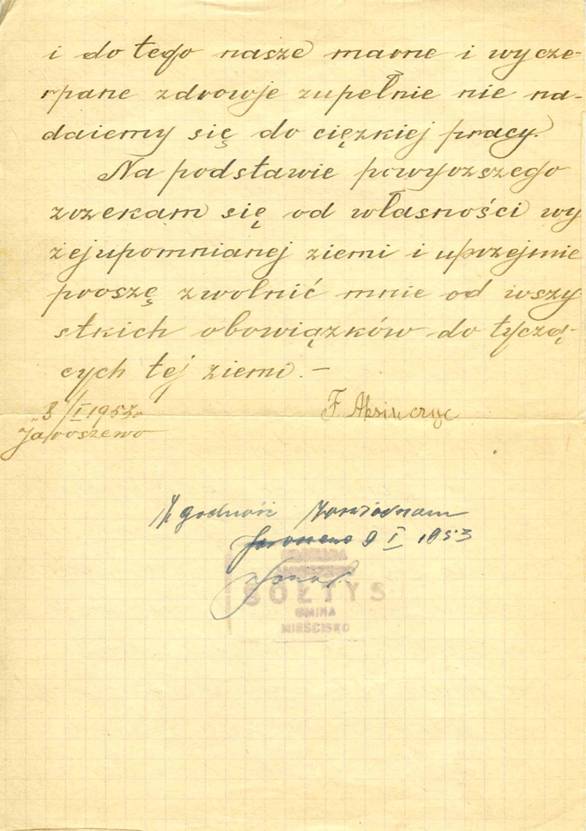 i do tego nasze marne i wycze-
rpane zdrowje zupełnie nie na-
daiemy się do ciężkiej pracy.
Na podstawie powyszszego
zrzekam się od własności wy
żejupomnianej ziemi i uprzejmie
proszę zwolnić mnie od wszy
stkich obowiązków do tyczą-
cych tej ziemi.-
8/I 1953r
Jaroszewo
F.
Zgodność
Jaroszewo 9 I 1953
SOŁTYS
GMINA
MIEŚCISKO